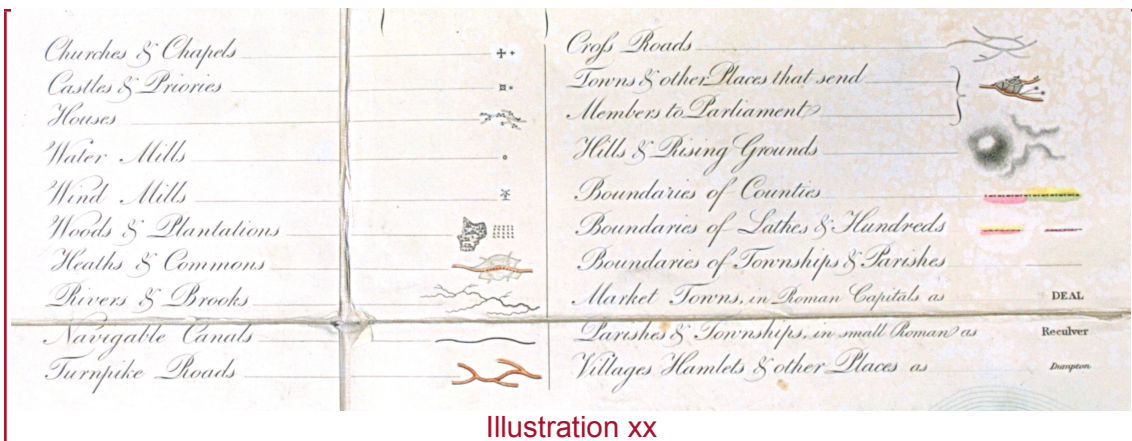 Churches & Chapels
Castles & Priories
Houses
Water Mills
Wind Mills
Woods & Plantations
Heaths & Commons
Rivers & Brooks
Navigable Canals
Turnpike Roads
Croſs Roads
Towns & other Places that send
Members to Parliament
Hills & Rising Grounds
Boundaries of Counties
Boundaries of Lathes & Hundreds
Boundaries of Townships & Parishes
Market Towns, in Roman Capitals as DEAL
Parishes & Townships, in small Roman as Reculver
Villages Hamlets & other Places as Dumpton
Illustration xx